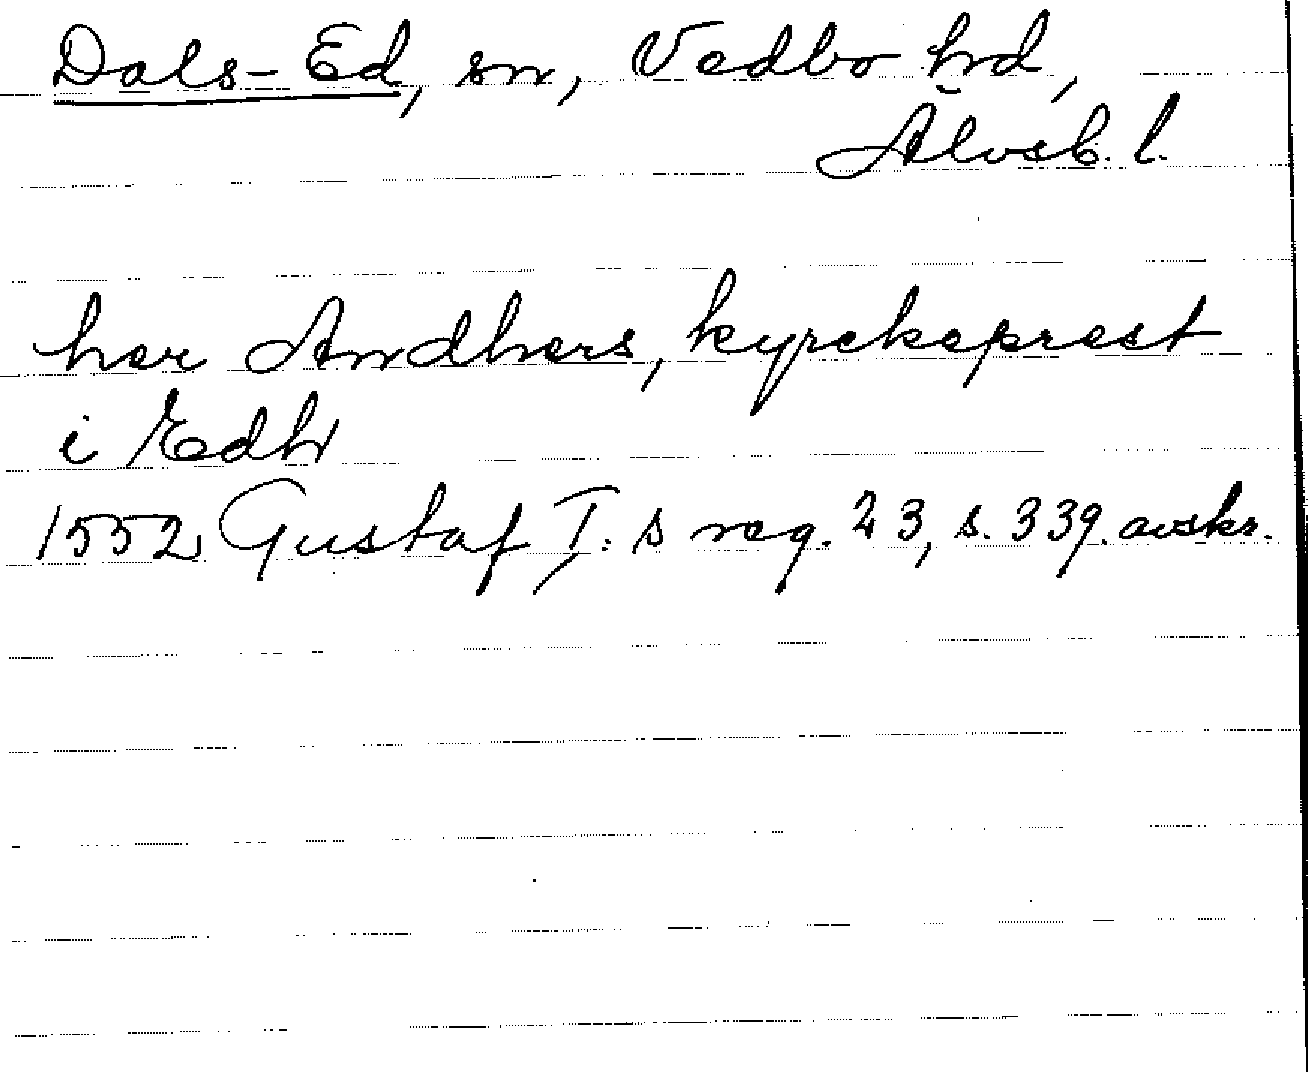 Dals-Ed, sn, Vedbo hrd,
Älvsb. l.
her Andhers, kyrckeprest
i Edh
1552 Gustaf I:s reg. 23, s. 339. avskr.